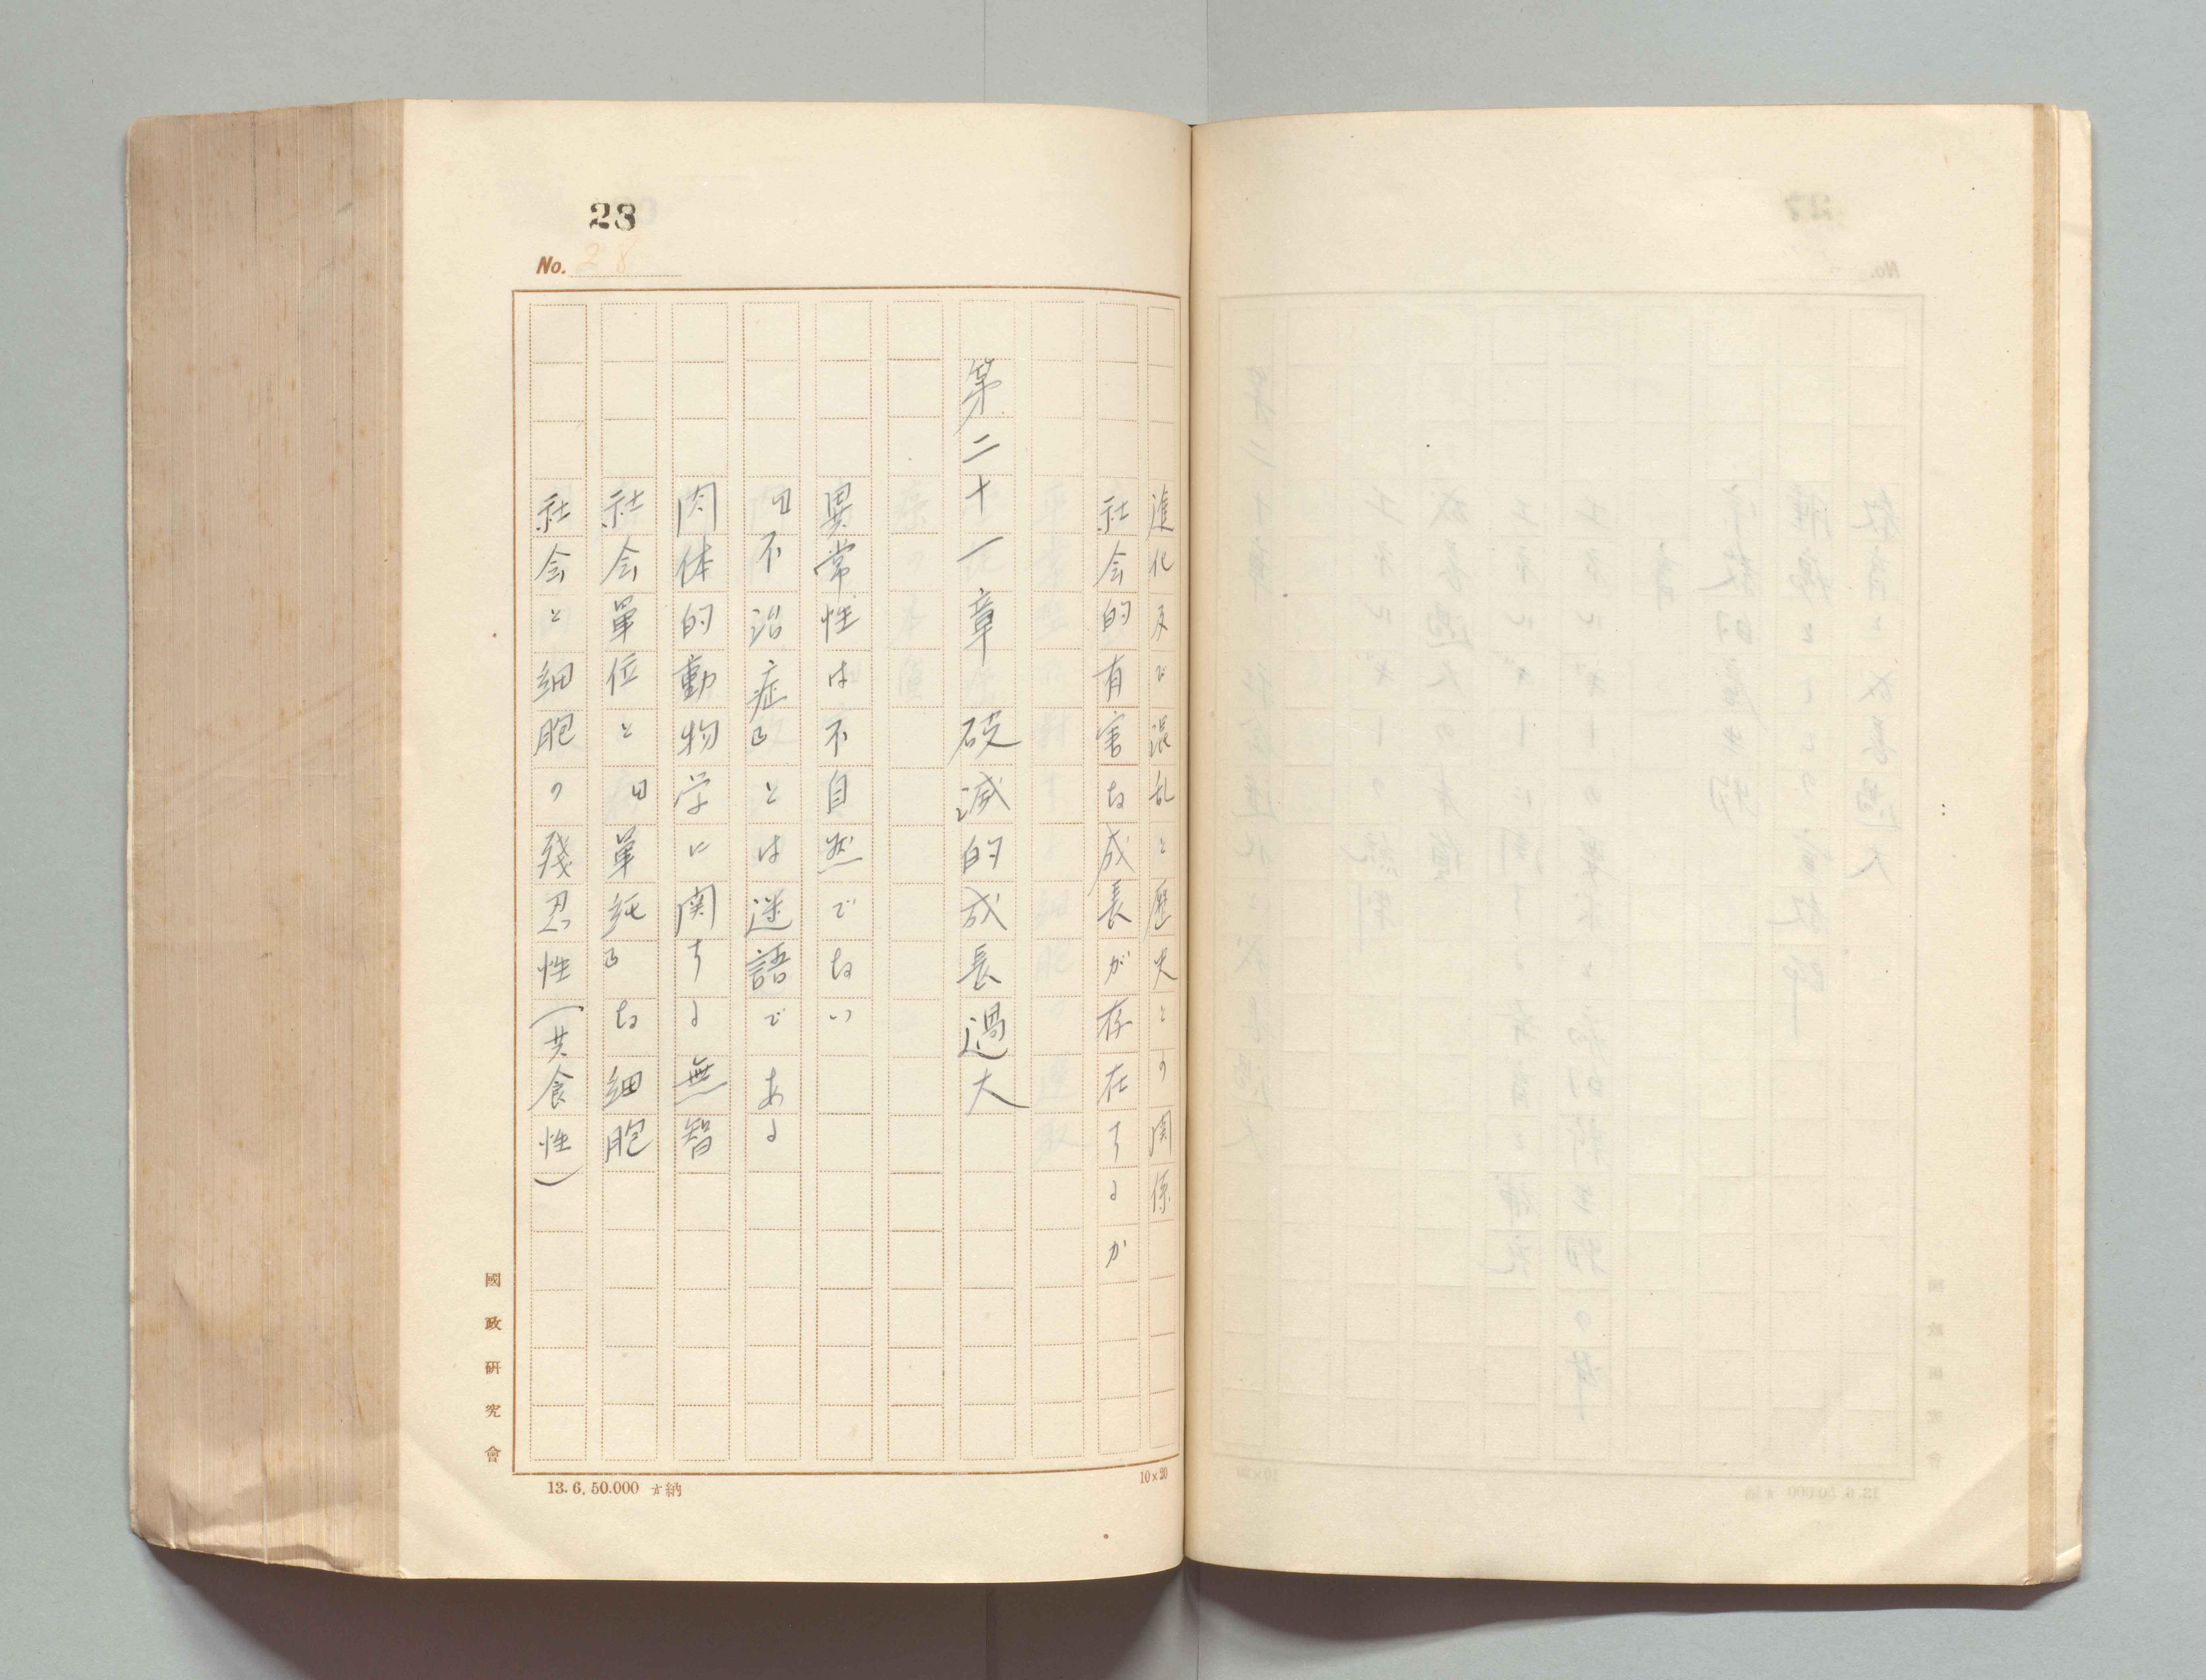 23
No. 28
進化及で混乱と歴史との関係
社会的有害な成長が存在するか
第二十一章 破滅的成長過大
異常性は不自然でない
「不治症」とは迷語である
肉体的動物学に関する無智
社会單位と「單純」な細胞
社会と細胞の残忍性(共食性)
國政研究會
13.6.50.000 納
10×20